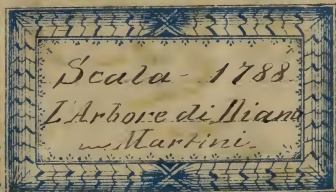 Scala - 1788.
L'Arbore di Diana
Martini.